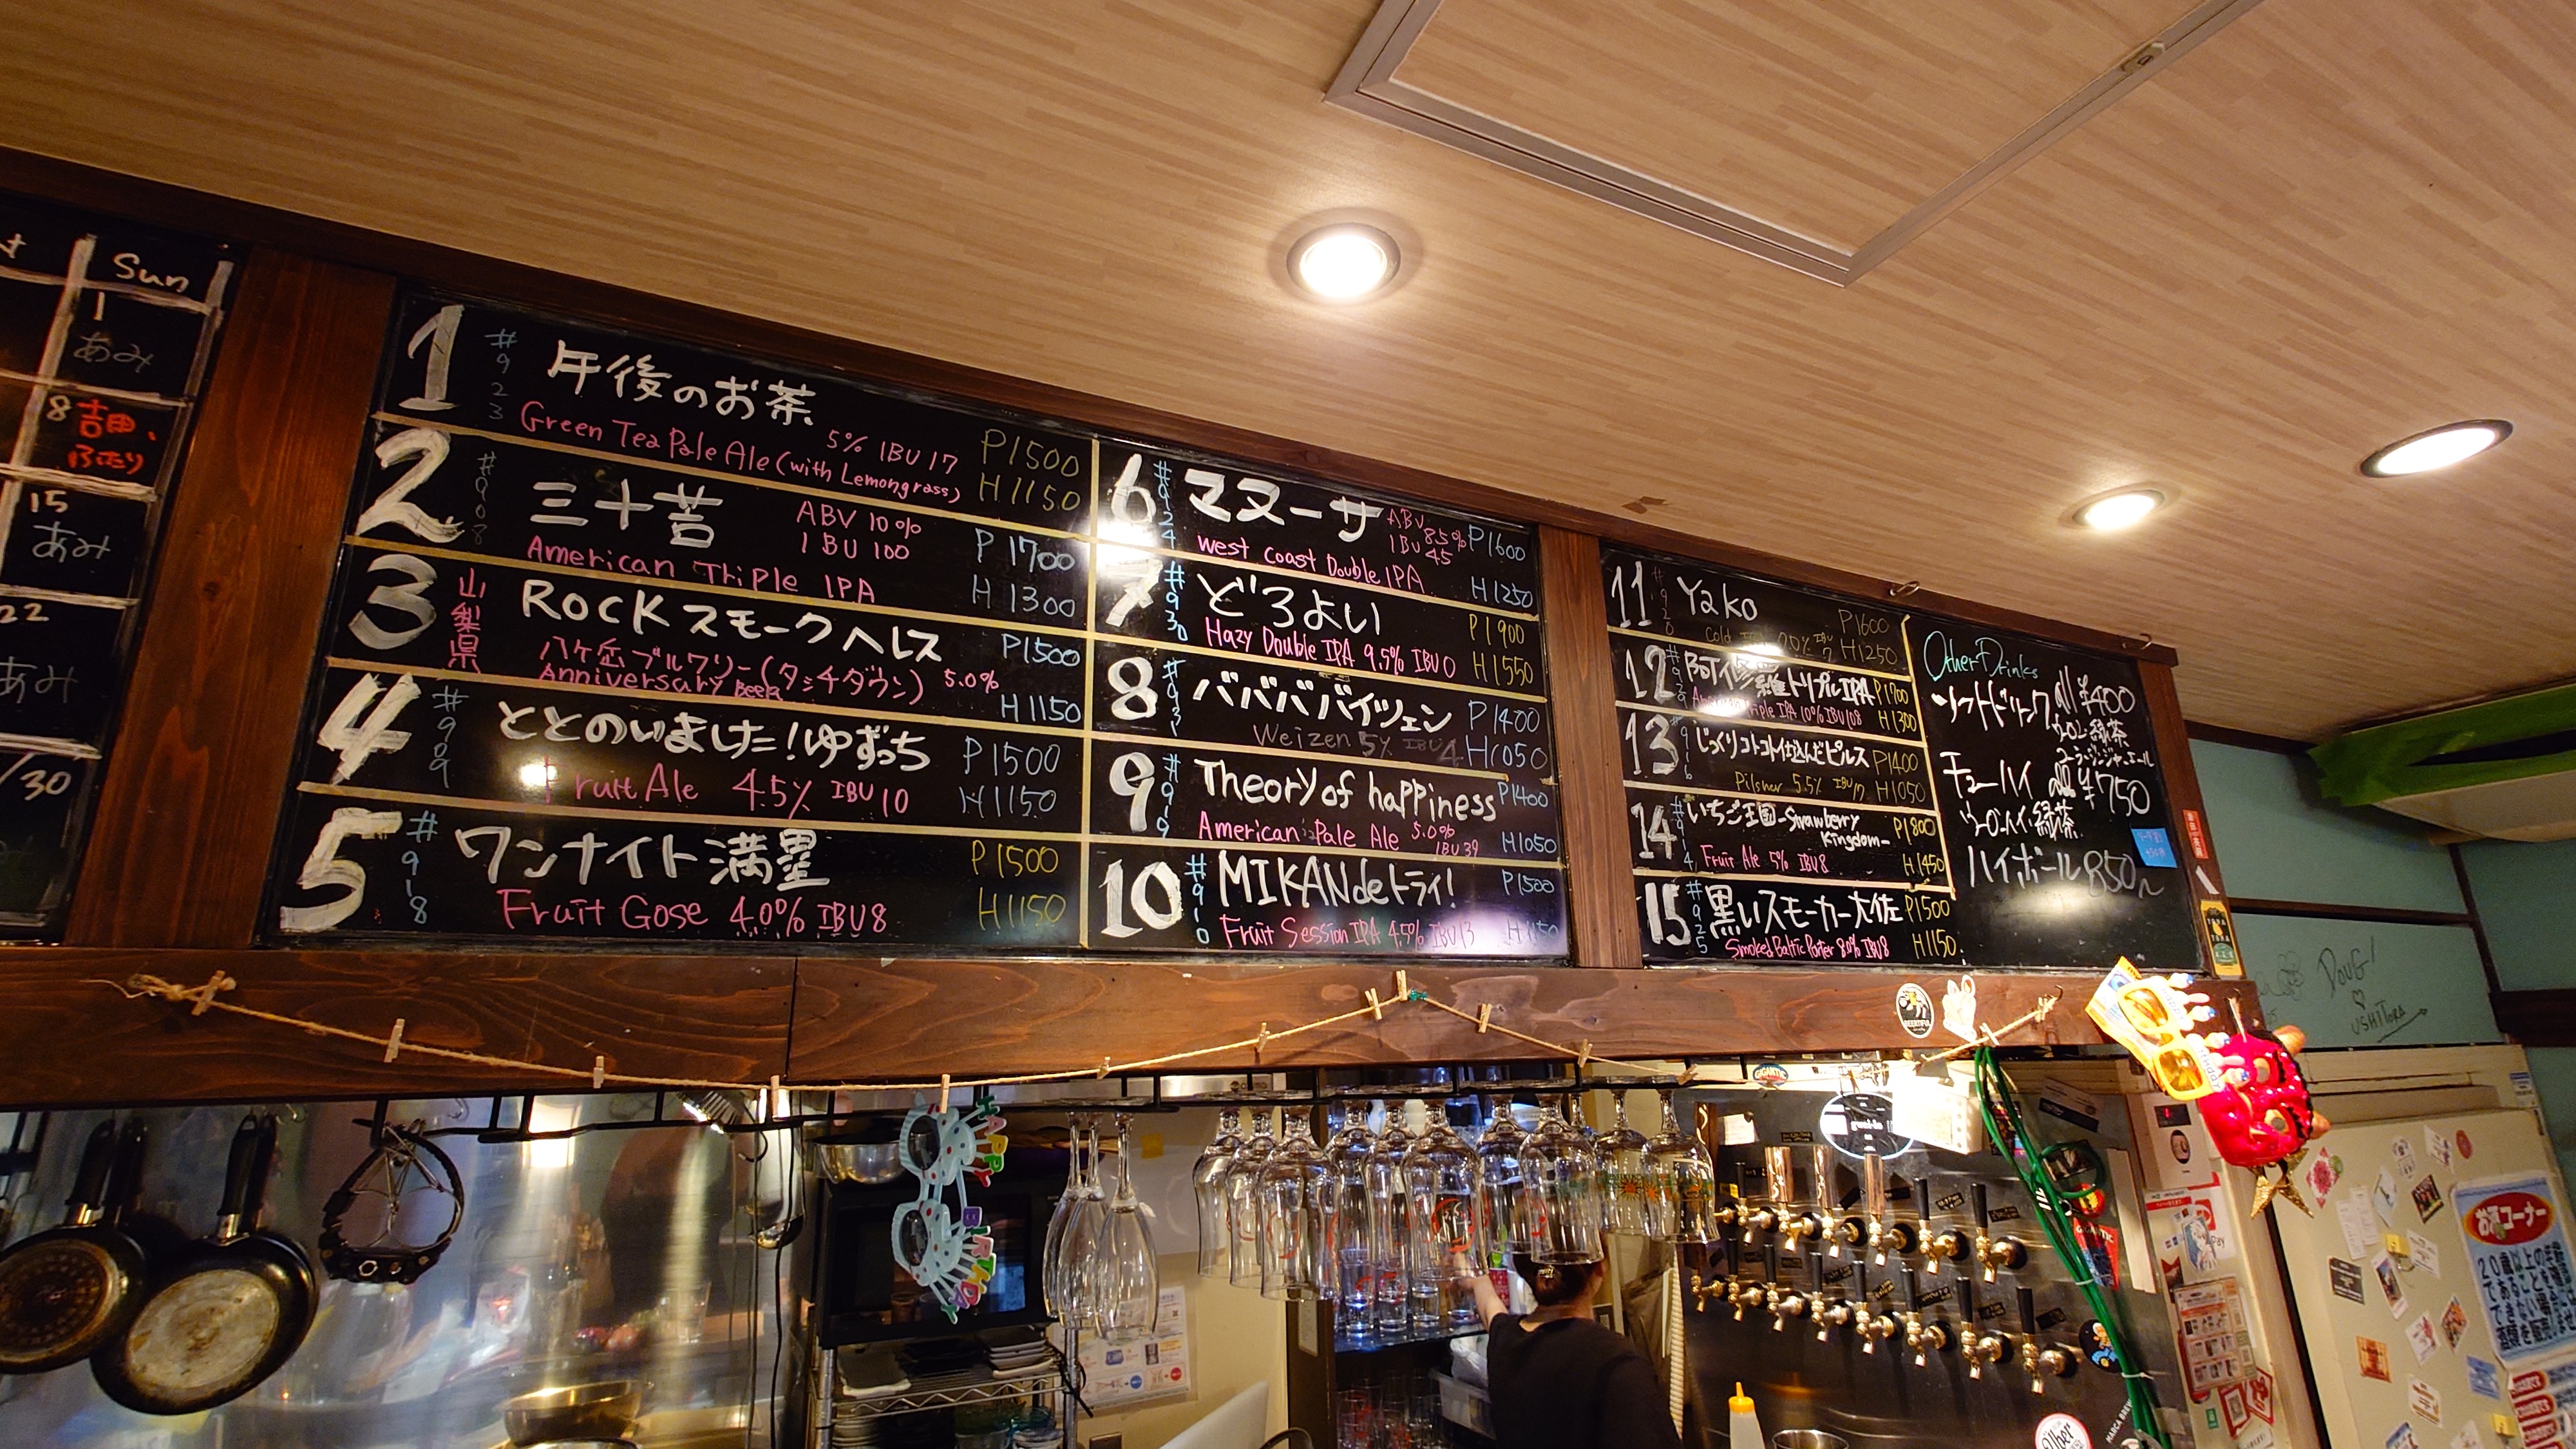 Sun
1
あみ
8 吉田、
ふたり
15
あみ
22
あみ
/30
1 #923 午後のお茶
Green Tea Pale Ale (with Lemongrass)
5% IBU 17
P1500
H1150
2 #908 三十苦
ABV 10%
IBU 100
American Triple IPA
P1700
H1300
3 山梨県 ROCK スモークヘレス
八ケ岳ブルワリー(タッチダウン) 5.0%
Anniversary Beer
P1500
H1150
4 #909 ととのいました!ゆずっち
Fruit Ale 4.5% IBU 10
P1500
H1150
5 #918 ワンナイト満塁
Fruit Gose 4.0% IBU8
P1500
H1150
6 #924 マヌーサ
ABV 8.5%
IBU 45
West Coast Double IPA
P1600
H1250
7 #930 どろよい
Hazy Double IPA 9.5% IBU0
P1900
H1550
8 #931 バババババイツェン
Weizen 5% IBU 4
P1400
H1050
9 #919 Theory of happiness
American Pale Ale 5.0%
IBU 39
P1400
H1050
10 #910 MIKANdeトライ!
Fruit Session IPA 4.5% IBU13
P1500
H1150
11 #920 Yako
Cold IPA
P1600
H1250
12 #929 トリプルIPA
American Triple IPA 10% IBU108
P1700
H1300
13 #916 じっくりコトコト仕込んだピルス
Pilsner 5.5% IBU17
P1400
H1050
14 #914 いちご王国-Strawberry
Kingdom-
Fruit Ale 5% IBU8
P1800
H1450
15 #925 黒いスモーカー大佐
Smoked Baltic Porter 8.0% IBU8
P1500
H1150
Other Drinks
ソフトドリンク all ¥400
コーラ・ジンジャーエール
チューハイ all ¥750
緑茶
ハイボール 850~
DOUG!
USHITORA
BEERTIFUL
GIGANTIC
HAPPY
BIRTHDAY
お酒コーナー